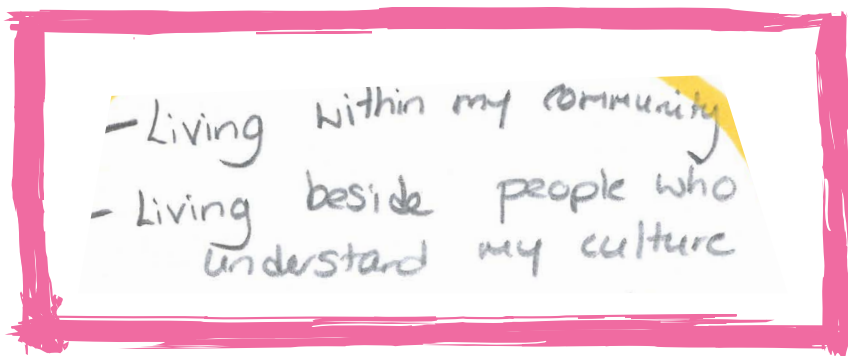 - Living within my community
- Living beside people who
understand my culture